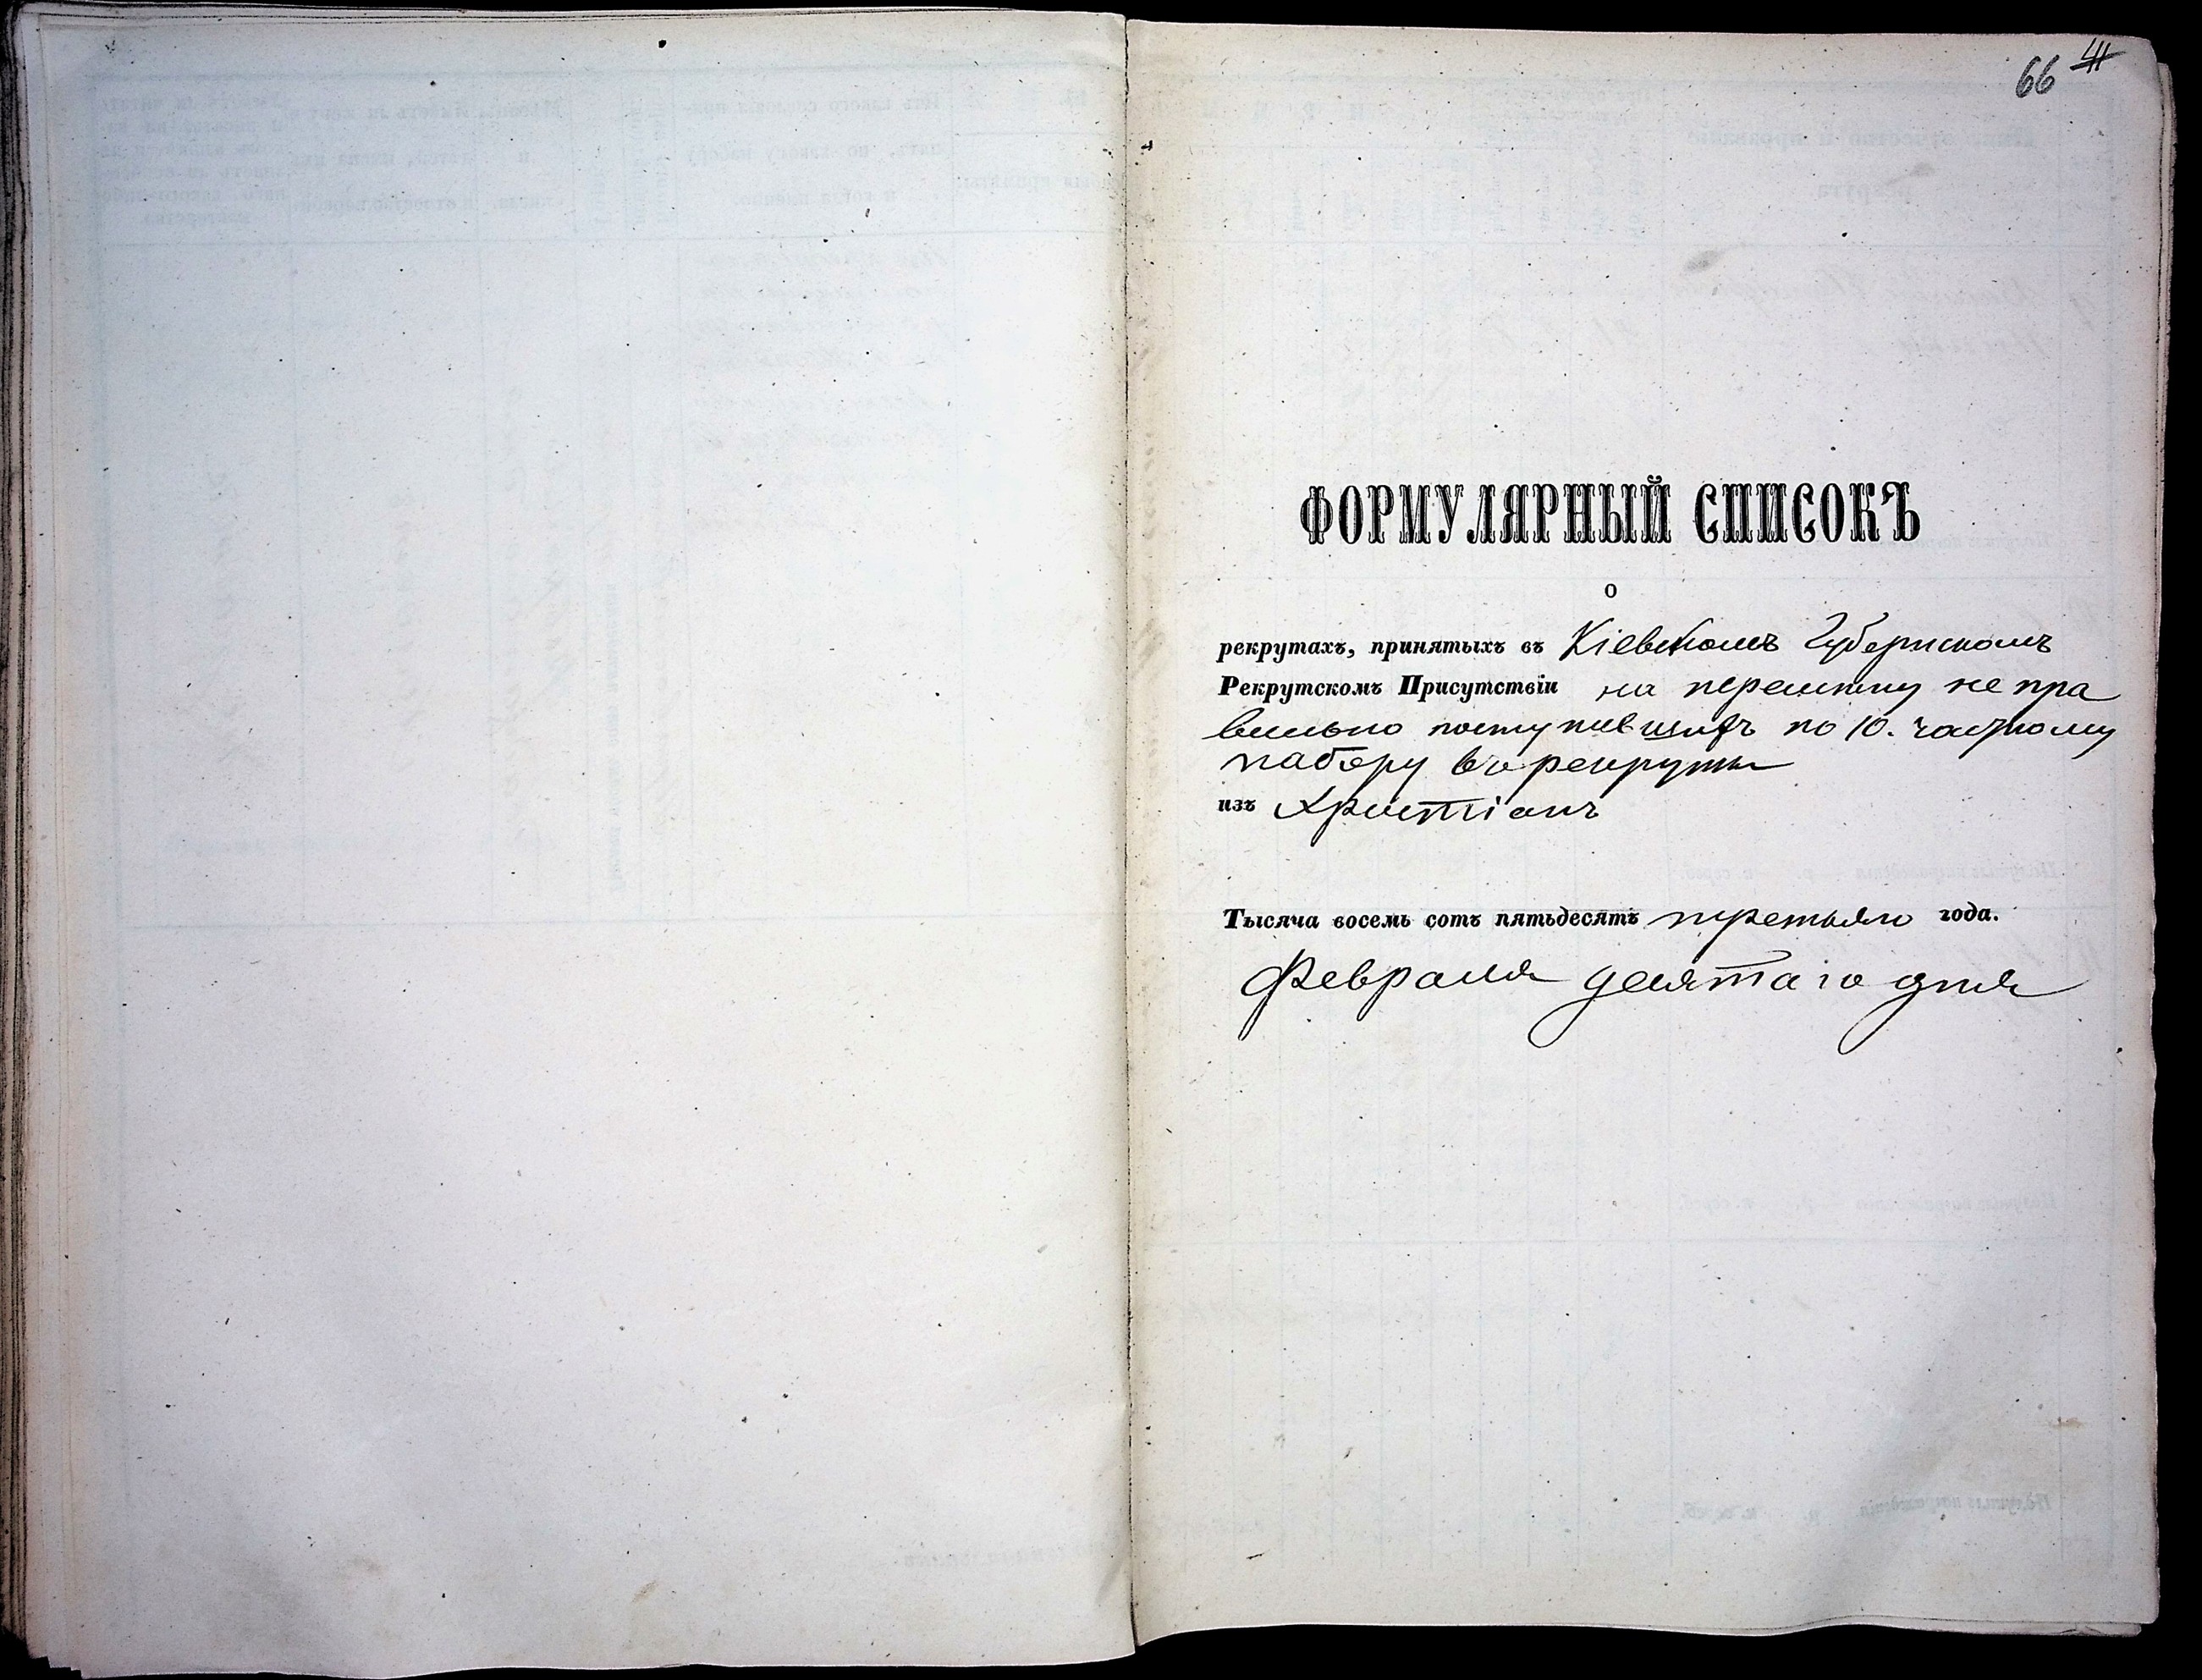 66 41
ФОРМУЛЯРНЫЙ СПИСОКЪ
о
рекрутахъ, принятыхъ въ Кіевскомъ Губернскомъ
Рекрутскомъ Присутствіи на перемѣну не пра
вильно поступившихъ по 10. частному
набору въ рекруты
изъ Христіанъ
Тысяча восемь сотъ пятьдесятъ третьяго года.
Февраля десятаго дня